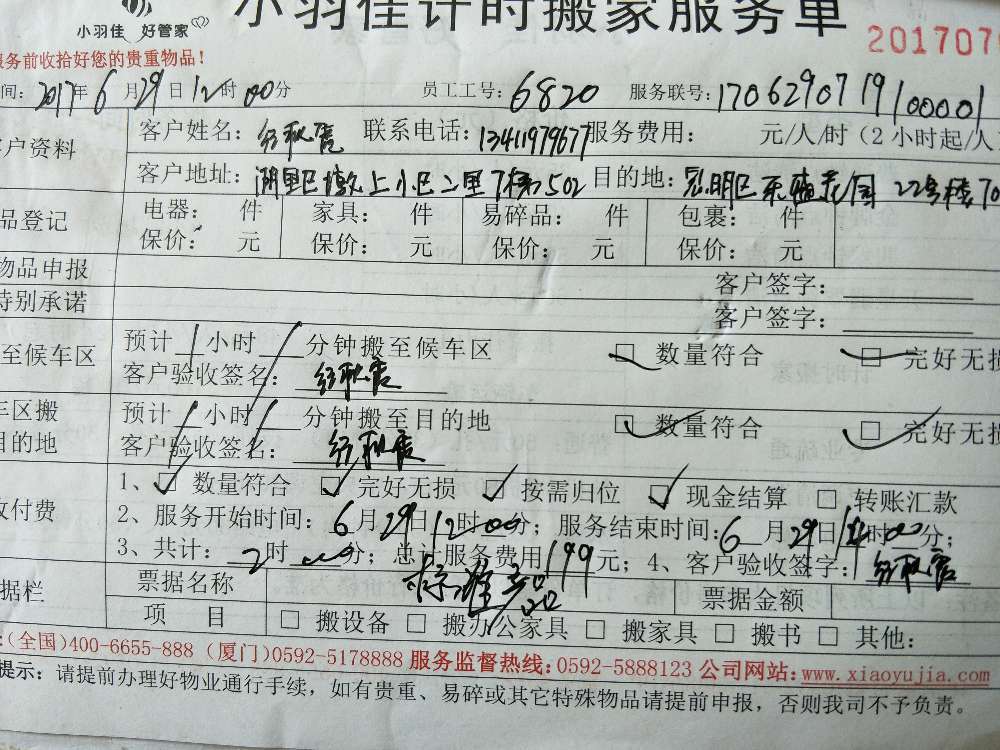 小羽佳计时搬家服务单
小羽佳 好管家
201707
服务前收拾好您的贵重物品!
间: 2017年6月29日12时00分 员工工号: 6820 服务联号: 170629071900001
客户资料 客户姓名: 联系电话: 13411979677 服务费用: 元/人/时(2小时起/人
客户地址: 湖里区 上小区二里7梯502 目的地: 思明区 花园22号楼70
品登记 电器: 件 家具: 件 易碎品: 件 包裹: 件
保价: 元 保价: 元 保价: 元 保价: 元
物品申报 客户签字:
特别承诺 客户签字:
至候车区 预计 小时 分钟搬至候车区 □ 数量符合 □ 完好无损
客户验收签名:
车区搬目的地 预计 小时 分钟搬至目的地 □ 数量符合 □ 完好无损
客户验收签名:
收付费 1、□ 数量符合 □ 完好无损 □ 按需归位 □ 现金结算 □ 转账汇款
2、服务开始时间: 6月29日12时00分; 服务结束时间: 6月29日14时00分;
3、共计: 2时00分; 总计服务费用199元; 4、客户验收签字:
据栏 票据名称 票据金额
项 目 □ 搬设备 □ 搬办公家具 □ 搬家具 □ 搬书 □ 其他:
:(全国)400-6655-888 (厦门)0592-5178888 服务监督热线:0592-5888123 公司网站:www.xiaoyujia.com
提示: 请提前办理好物业通行手续,如有贵重、易碎或其它特殊物品请提前申报,否则我司不予负责。